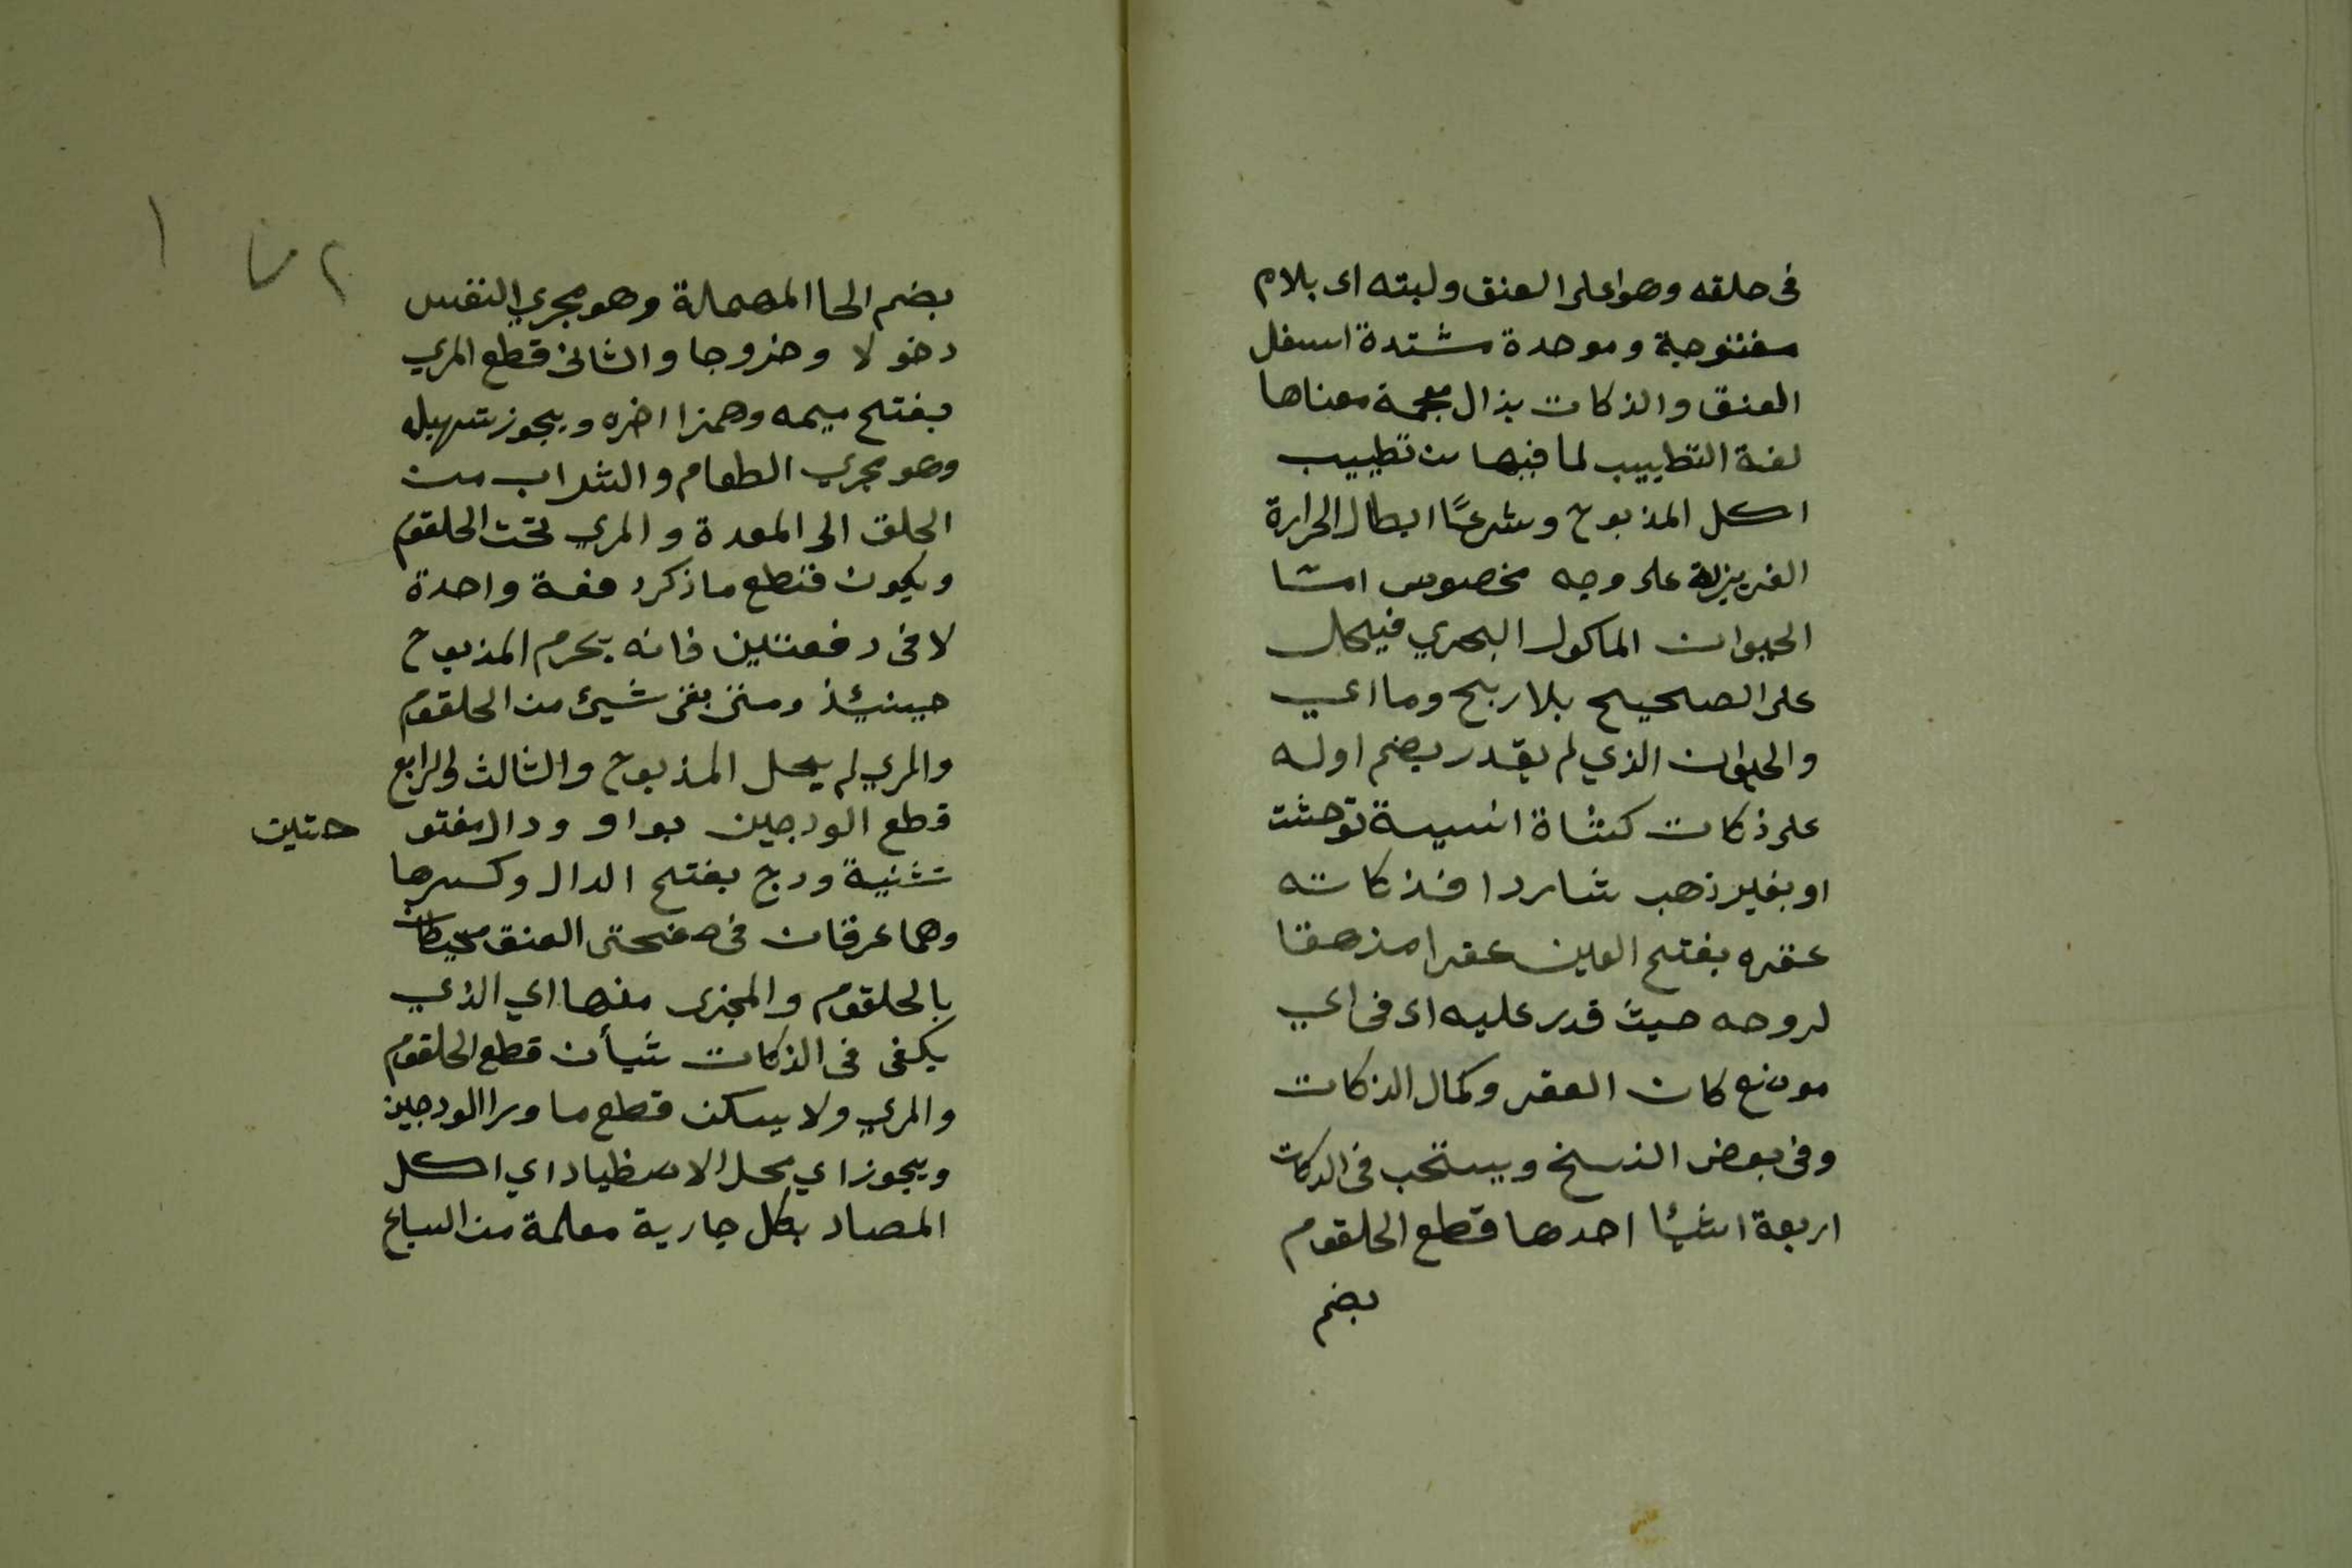 فى حلقه وهو اعلى العنق ولبته اى بلام
مفتوحة وموحدة مشتدة اسفل
العنق والذكات بذال معجمة معناها
لغة التطييب لما فيها من تطييب
اكل المذبوح وشرعًا ابطال الحرارة
الغريزية على وجه مخصوص اما
الحيوان الماكول البحري فيحل
على الصحيح بلا ربح وما اي
والحيوان الذي لم يقدر بضم اوله
على ذكات كشاة انسيسة توحشت
او بغير ذهب شاردا فذكاته
عقره بفتح العين عقرا مزهقا
لروحه حيث قدر عليه اى فى اي
موضع كان العقر وكمال الذكات
وفى بعض النسخ ويستحب فى الذكات
اربعة اشيئا احدها قطع الحلقوم
بضم
٢
١
بضم الحا المهملة وهو مجري النفس
دخولا وخروجا والثانى قطع المري
بفتح ميمه وهمزا اخره ويجوز تسهيله
وهو مجري الطعام والشراب من
الحلق الى المعدة والمري تحت الحلقوم
ويكون قطع ما ذكر دفعة واحدة
لا فى دفعتين فانه يحرم المذبوح
حينئذ ومتى بقى شيئ من الحلقوم
والمري لم يحل المذبوح والثالث والرابع
قطع الودجين بواو ودال مفتو حتين
تثنية ودج بفتح الدال وكسرها
وهما عرقان فى صفحتى العنق محيطان
بالحلقوم والمجزى منها اي الذي
يكفى فى الذكات شيأن قطع الحلقوم
والمري ولا يسكن قطع ما ورا الودجين
ويجوز اي محل الاصطياد اي اكل
المصاد بكل جارية معلمة من السباع